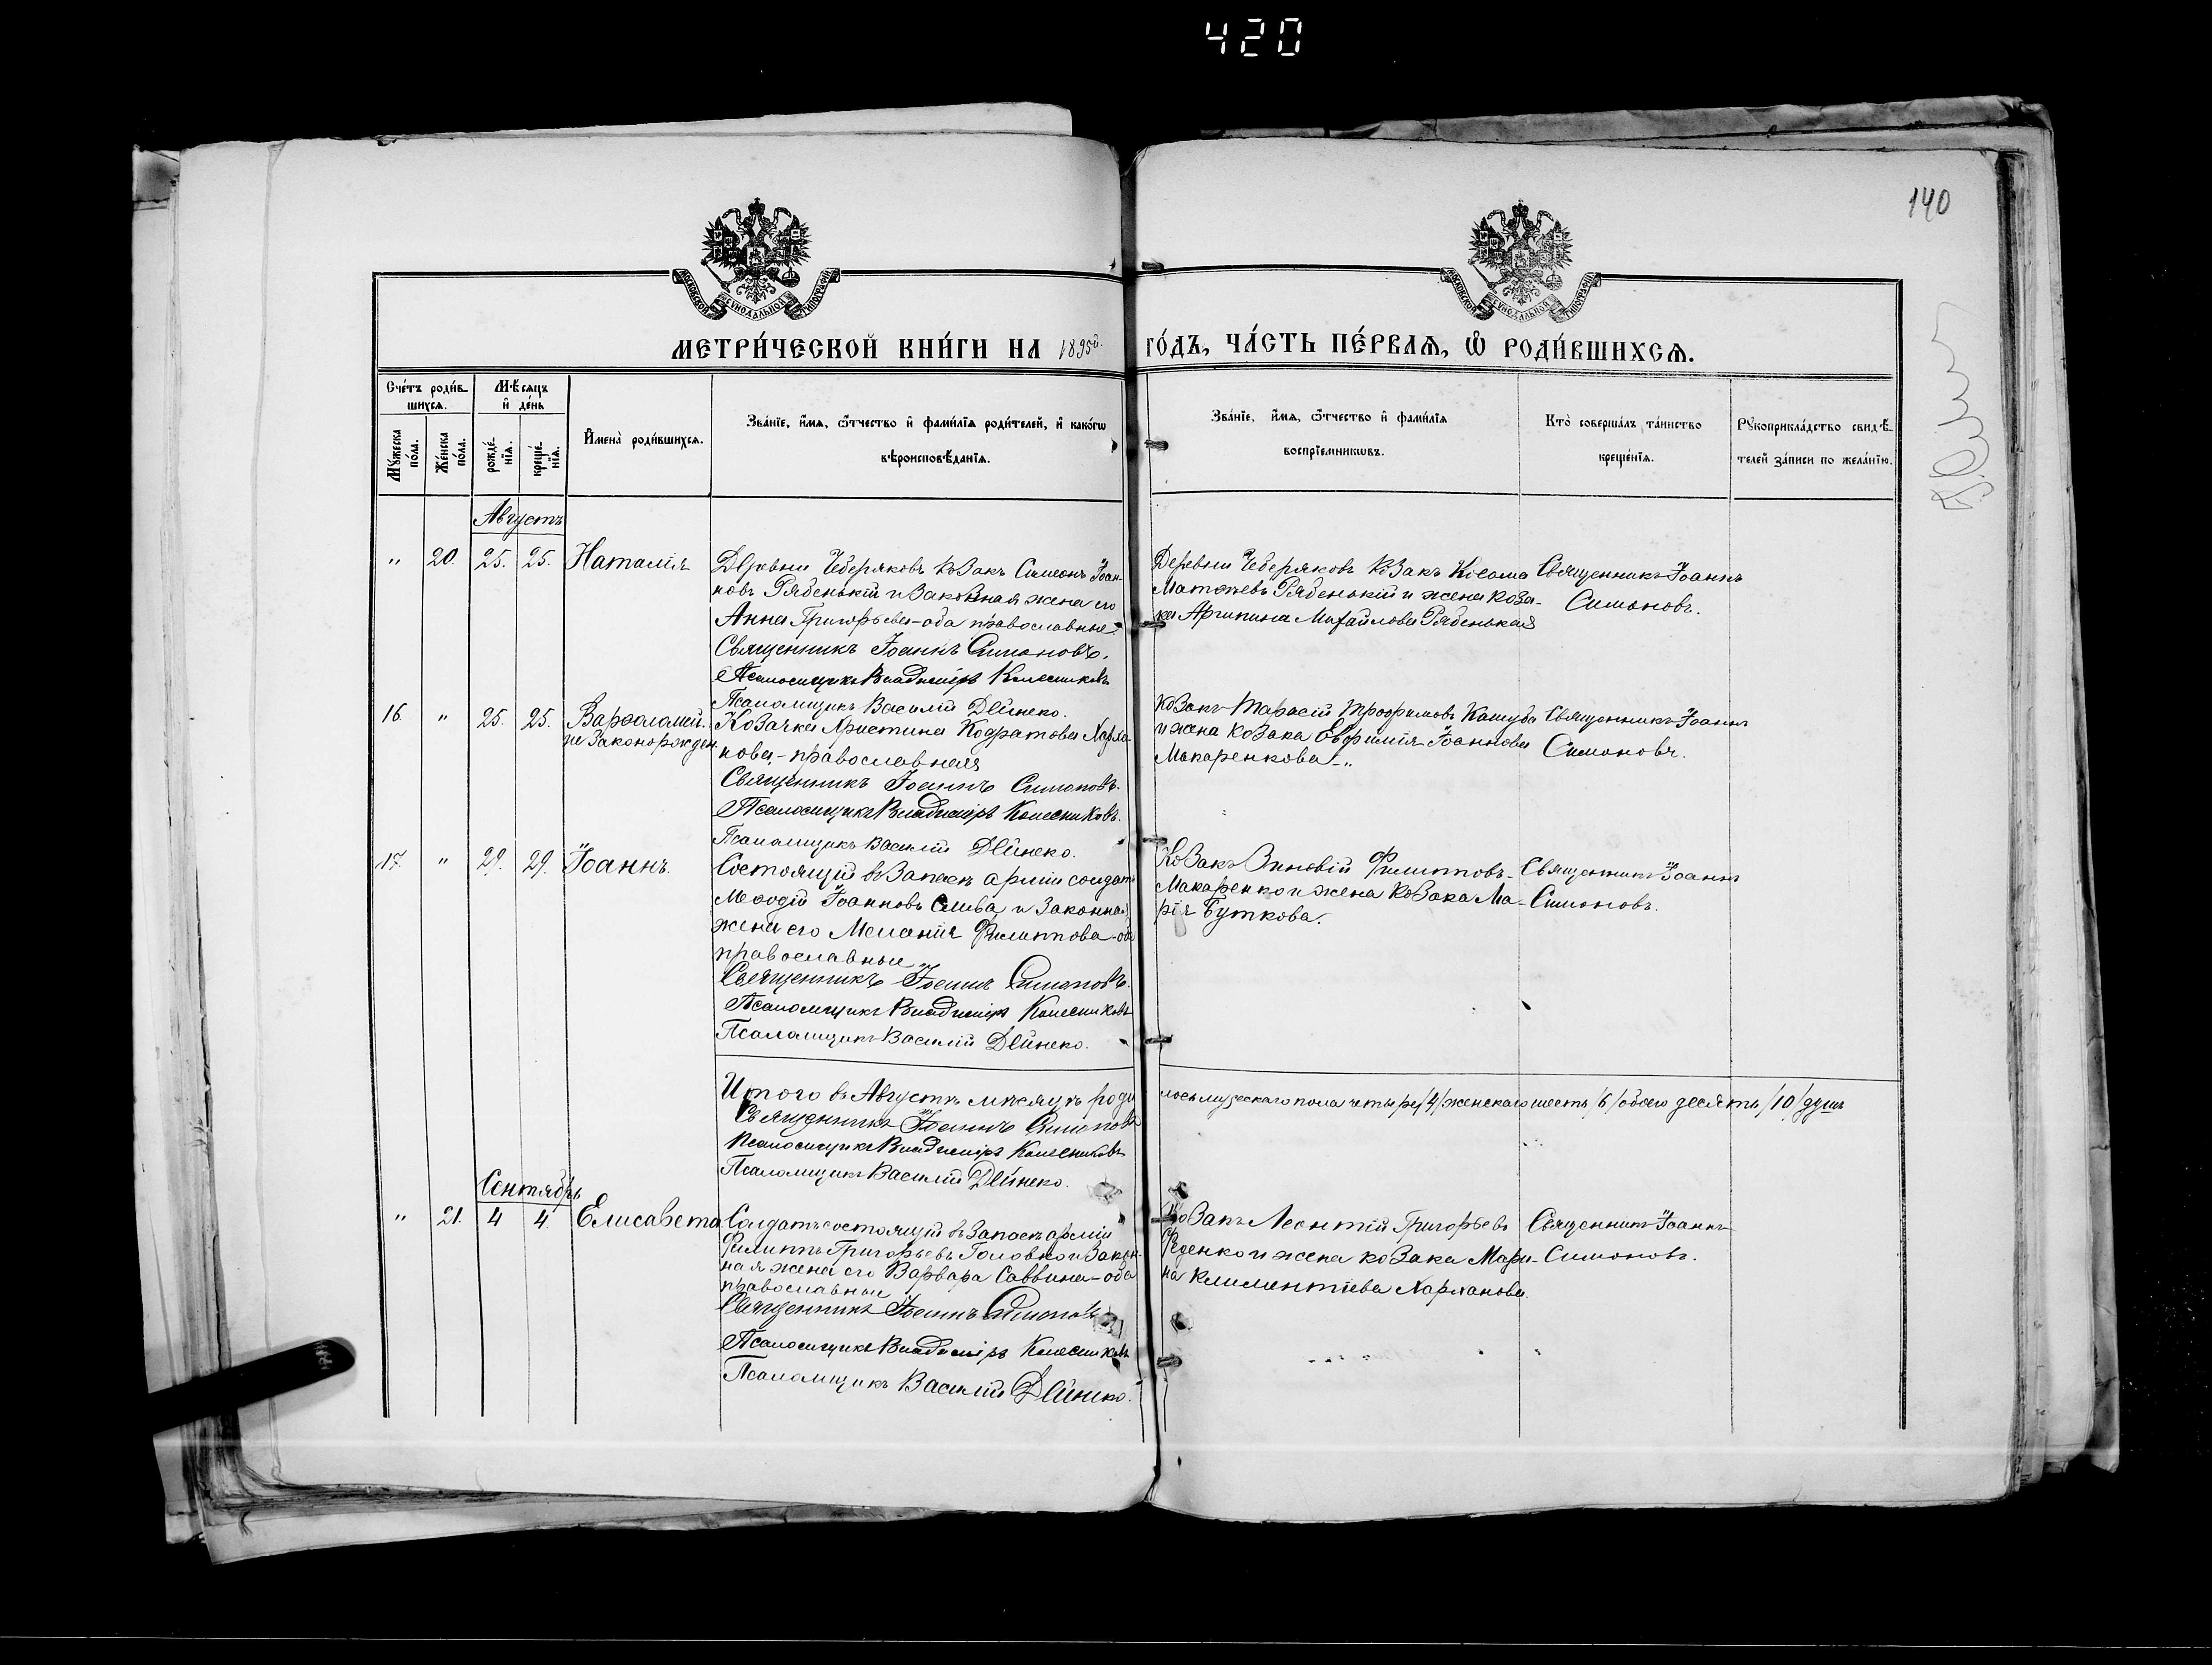 420
140
МОСКОВСКОЙ СѴНОДАЛЬНОЙ ТИПОГРАФІИ
МОСКОВСКОЙ СѴНОДАЛЬНОЙ ТИПОГРАФІИ
МЕТРИ́ЧЕСКОЙ КНИ́ГИ НА 1895й. ГО́ДЪ, ЧА́СТЬ ПЕ́РВАѦ, Ѡ҆ РОДИ́ВШИХСѦ.
Сче́тъ роди́в-
шихсѧ.
Мѣ́сяцъ
и҆ де́нь
Мꙋ́жеска
по́ла.
Же́нска
по́ла.
рожде́-
нїѧ.
креще́-
нїѧ.
И҆мена̀ роди́вшихсѧ.
Зва́нїе, и҆́мѧ, ѻ҆́тчество и҆ фами́лїѧ роди́телей, и҆ како́гѡ
вѣроисповѣ́данїѧ.
Зва́нїе, и҆́мѧ, ѻ҆́тчество и҆ фами́лїѧ
воспрїе́мникѡвъ.
Кто̀ соверша́лъ та́инство
креще́нїѧ.
Рꙋкоприкла́дство свидѣ́-
телей за́писи по жела́нїю.
Августъ
" 20. 25. 25. Наталія
Деревни Чеберяковъ козакъ Симеонъ Іоан-
новъ Рябенькій и законная жена его
Анна Григорьева - оба православные.
Священникъ Іоаннъ Симоновъ.
Псаломщикъ Владиміръ Колесниковъ
Псаломщикъ Василій Дейнеко.
Деревни Чеберяковъ козакъ Косма
Матѳеевъ Рябенькій и жена коза-
ка Агрипина Михайлова Рябенькая
Священникъ Іоаннъ
Симоновъ.
16. " 25. 25. Варѳоломей.
незаконорожден.
Козачка Христина Кодратова Харла-
нова, - православная
Священникъ Іоаннъ Симоновъ.
Псаломщикъ Владиміръ Колесниковъ.
Псаломщикъ Василій Дейнеко.
Козакъ Тарасій Трофимовъ Кашуба
и жена козака Евфимія Іоаннова
Макаренкова -"
Священникъ Іоаннъ
Симоновъ.
17. " 29. 29. Іоаннъ.
Состоящій въ запасѣ арміи солдатъ
Меѳодій Іоанновъ Слива, и законная
жена его Меланія Филиппова - оба
православные
Священникъ Іоаннъ Симоновъ.
Псаломщикъ Владиміръ Колесниковъ
Псаломщикъ Василій Дейнеко.
Козакъ Зиновій Филипповъ
Макаренко и жена козака Ма-
рія Буткова.
Священникъ Іоаннъ
Симоновъ.
Итого въ Августѣ мѣсяцѣ роди лось мужескаго пола четыре /4/ женскаго шесть /6/ обоего десять /10/ душъ
Священникъ Іоаннъ Симоновъ
Псаломщикъ Владиміръ Колесниковъ
Псаломщикъ Василій Дейнеко.
Сентябрь
" 21. 4 4. Елисавета
Солдатъ состоящій въ запасѣ арміи
Филиппъ Григорьевъ Головко и закон-
ная жена его Варвара Саввина - оба
православные
Священникъ Іоаннъ Симоновъ
Псаломщикъ Владиміръ Колесниковъ
Псаломщикъ Василій Дейнеко.
Козакъ Леонтій Григорьевъ
Феденко и жена козака Мари-
на Климентіева Харланова.
Священникъ Іоаннъ
Симоновъ.